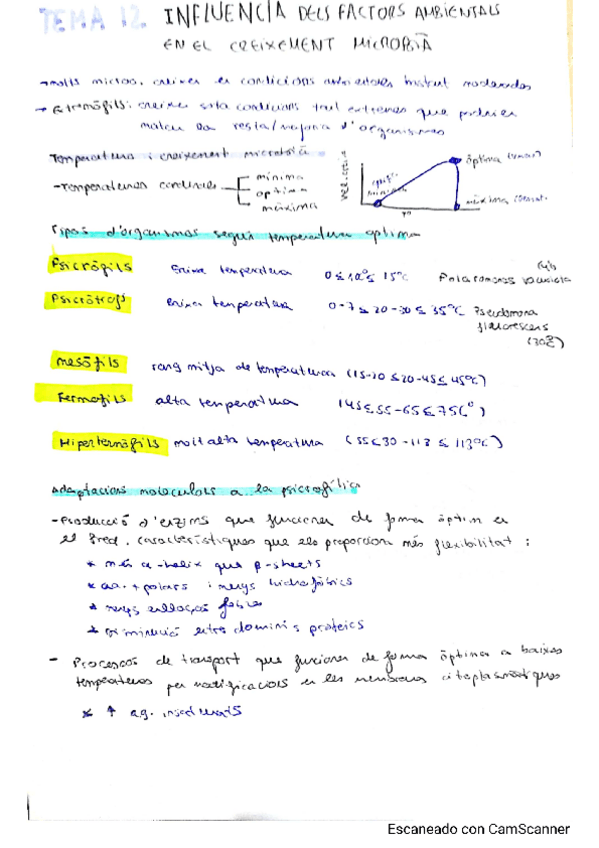 TEMA 12. INFLUENCIA DELS FACTORS AMBIENTALS
EN EL CREIXEMENT MICROBIÀ
→ molts micros. creixen en condicions moderades
→ Extremòfils: creixen sota condicions tant extremes que podrien
matar la resta/majoria d'organismes
Temperatura i creixement microbià
- Temperatures cardinals
mínima
òptima
màxima
òptima
màxima
Tº
Tipos d'organismes segui temperatura optima
Psicròfils
temperatura 0 ≤ 10º ≤ 15ºC Polaromonas
Psicròtrofs
temperatura 0-7 ≤ 20-30 ≤ 35ºC Pseudomona
fluorescens
mesòfils rang mitja de temperaturas (15-20 ≤ 20-45 ≤ 45ºC)
Termofils alta temperatura (45 ≤ 55-65 ≤ 75Cº)
Hipertermòfils molt alta temperatura (55 ≤ 80-113 ≤ 113ºC)
Adaptacions moleculars a la psicrofília
- Producció d'enzims que funcionen de forma òptim en
el fred. característiques que els proporcionen més flexibilitat:
* més α-helix que β-sheets
* aa. + polars i menys hidrofòbics
* menys enllaços febles
* disminució entre dominis proteics
- Processos de transport que funcionen de forma òptima a baixes
temperatures per modificacions en les membranes citoplasmàtiques
* ↑ ag. insaturats
Escaneado con CamScanner